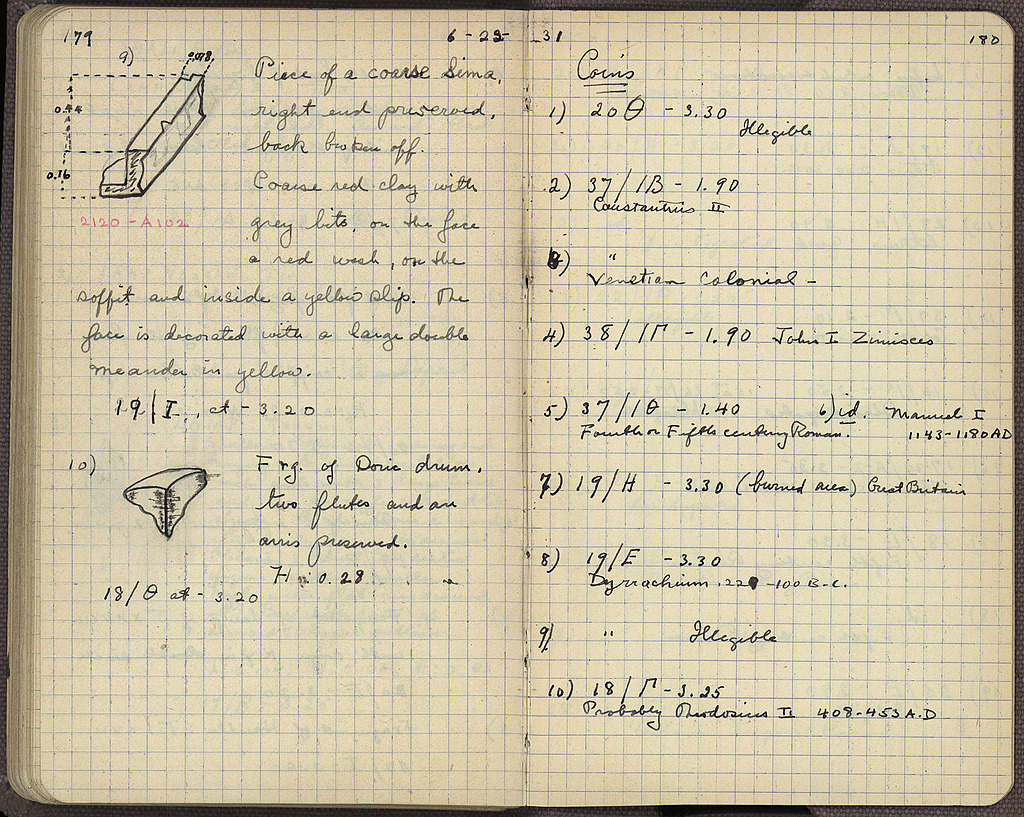 179
6-23-31
9)
0.078
0.44
0.16
Piece of a coarse Sima,
right end preserved,
back broken off.
Coarse red clay with
grey bits, on the face
a red wash, on the
soffit and inside a yellow slip. The
face is decorated with a large double
meander in yellow.
2120-A102
19/I, at - 3.20
10)
Frg. of Doric drum,
two flutes and an
arris preserved.
H: 0.28
18/Θ at - 3.20
180
Coins
1) 20 Θ - 3.30
Illegible
2) 37/ΙΒ - 1.90
Constantius II
3) "
Venetian Colonial -
4) 38/ΙΓ - 1.90 John I Zimisces
5) 37/ΙΘ - 1.40 6) id. Manuel I
Fourth or Fifth century Roman. 1143-1180 AD
7) 19/H - 3.30 (burned area) Great Britain
8) 19/E - 3.30
Dyrrachium . 229-100 B.C.
9) " Illegible
10) 18/Γ - 3.25
Probably Theodosius II 408-453 A.D